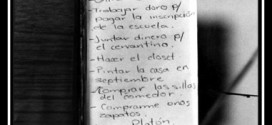 - Trabajar duro p/
pagar la inscripción
de la escuela.
- Juntar dinero p/
el cervantino.
- Hacer el closet
- Pintar la casa en
septiembre.
- Comprar las sillas
del comedor.
- Comprarme unos
zapatos.
Platón.